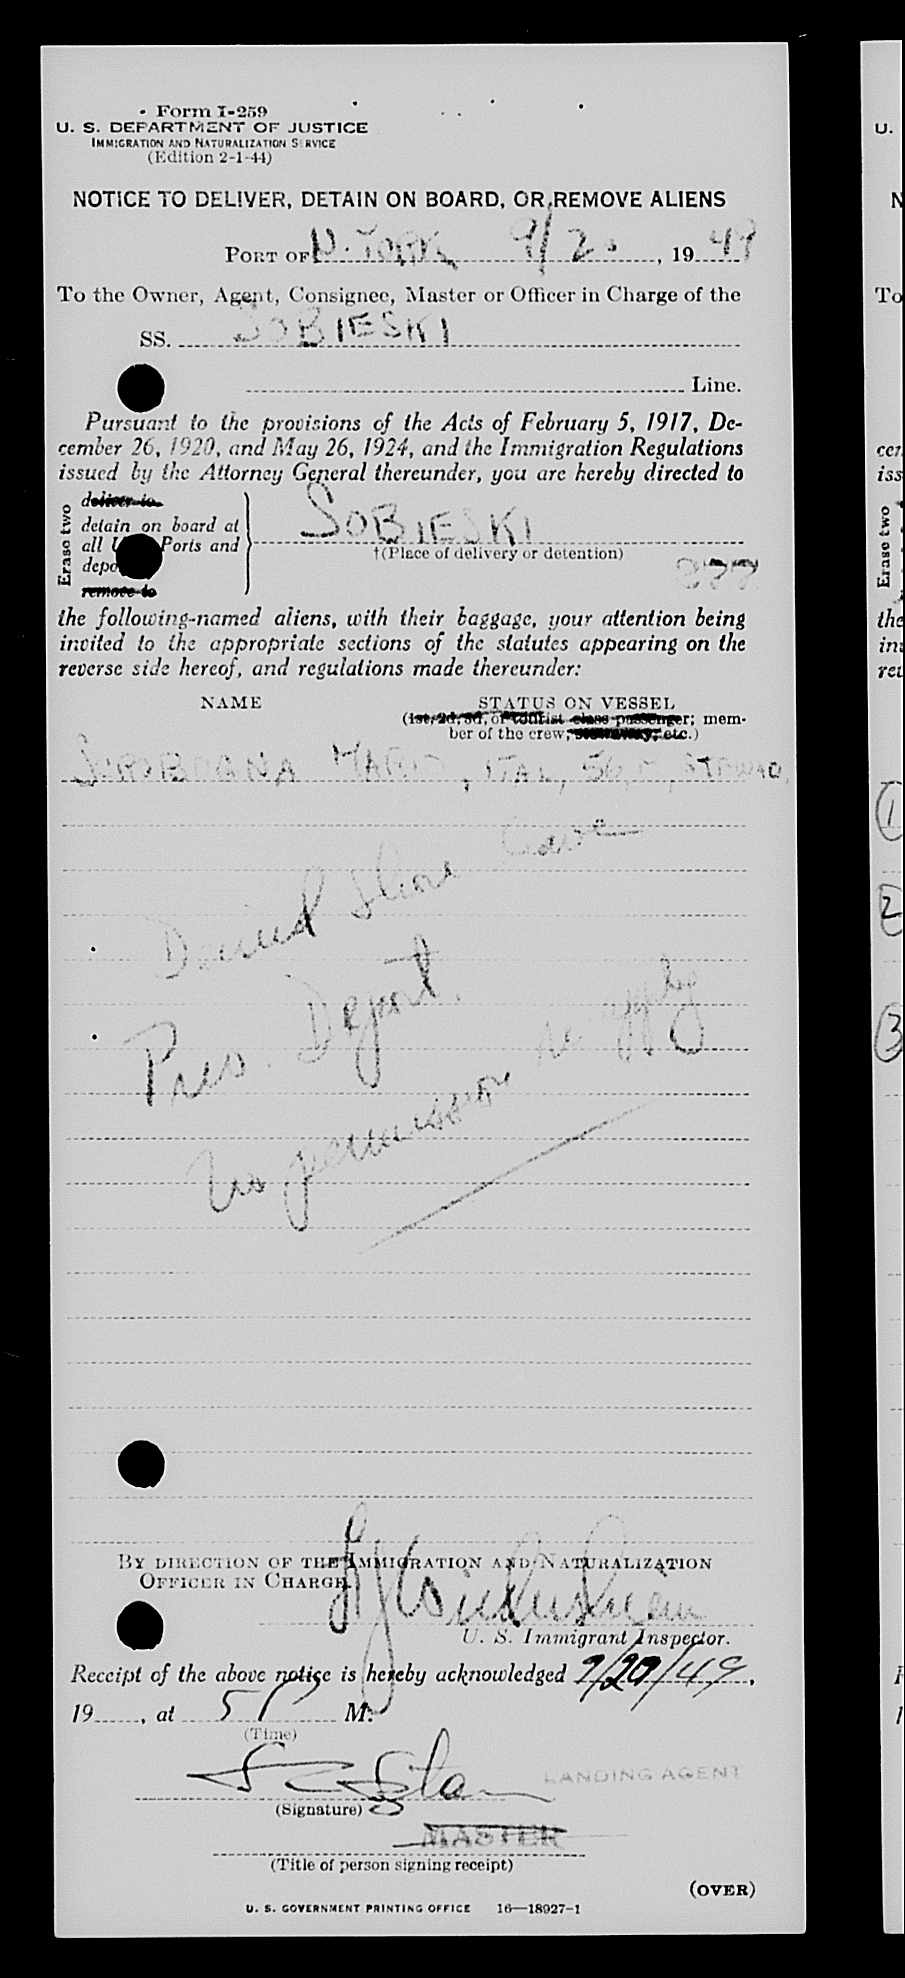 Form I-259
U. S. DEPARTMENT OF JUSTICE
IMMIGRATION AND NATURALIZATION SERVICE
(Edition 2-1-44)
NOTICE TO DELIVER, DETAIN ON BOARD, OR REMOVE ALIENS
PORT OF N. YORK 9/20, 1949
To the Owner, Agent, Consignee, Master or Officer in Charge of the
SS. SOBIESKI
Line.
Pursuant to the provisions of the Acts of February 5, 1917, De-
cember 26, 1920, and May 26, 1924, and the Immigration Regulations
issued by the Attorney General thereunder, you are hereby directed to
Erase two
deliver to
detain on board at
all U Ports and
depo
remove to
SOBIESKI
†(Place of delivery or detention)
the following-named aliens, with their baggage, your attention being
invited to the appropriate sections of the statutes appearing on the
reverse side hereof, and regulations made thereunder:
NAME STATUS ON VESSEL
(1st, 2d, 3d, or tourist class passenger; mem-
ber of the crew; stowaway, etc.)
ITAL, 56, M,
Denied shore leave
Prev. Deport.
No permission to apply
BY DIRECTION OF THE IMMIGRATION AND NATURALIZATION
OFFICER IN CHARGE.
U. S. Immigrant Inspector.
Receipt of the above notice is hereby acknowledged 9/20/49,
19, at 5 P M.
(Time)
LANDING AGENT
(Signature)
MASTER
(Title of person signing receipt)
(OVER)
U. S. GOVERNMENT PRINTING OFFICE 16—18927-1
U.
N
To
cem
iss
Erase two
the
inv
rev
1
2
3